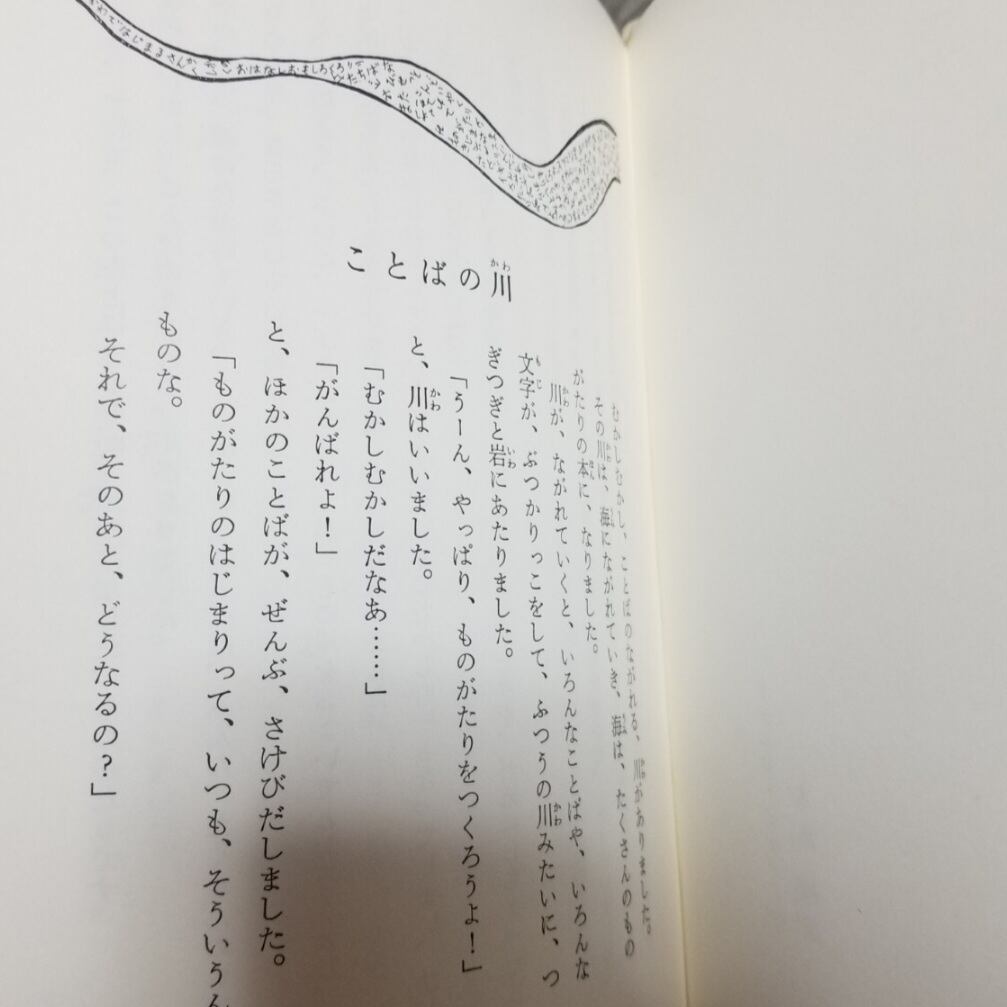 ことばの川
むかしむかし、ことばのながれる、川がありました。
その川は、海にながれていき、海は、たくさんのもの
がたりの本に、なりました。
川が、ながれていくと、いろんなことばや、いろんな
文字が、ぶつかりっこをして、ふつうの川みたいに、つ
ぎつぎと岩にあたりました。
「うーん、やっぱり、ものがたりをつくろうよ！」
と、川はいいました。
「むかしむかしだなあ……」
「がんばれよ！」
と、ほかのことばが、ぜんぶ、さけびだしました。
「ものがたりのはじまりって、いつも、そういうん
ものな。
それで、そのあと、どうなるの？」